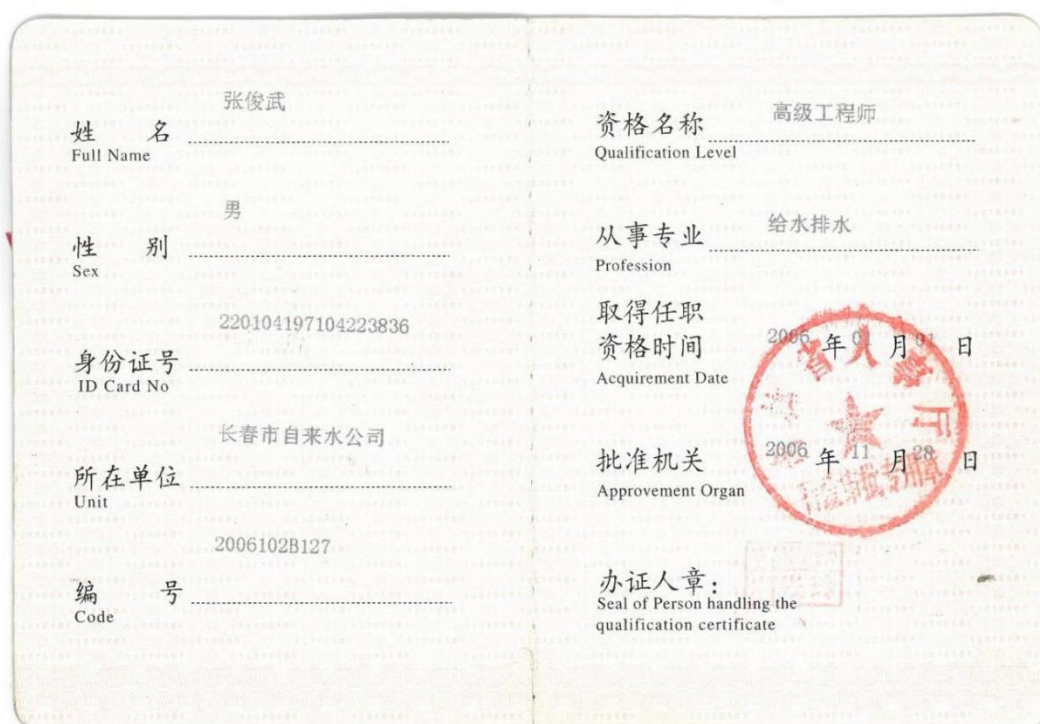 张俊武
姓 名
Full Name
男
性 别
Sex
220104197104223836
身份证号
ID Card No
长春市自来水公司
所在单位
Unit
2006102B127
编 号
Code
高级工程师
资格名称
Qualification Level
给水排水
从事专业
Profession
取得任职
资格时间 2006 年 01 月 01 日
Acquirement Date
省人事厅
批准机关 2006 年 11 月 28 日
Approvement Organ
专用章
办证人章：
Seal of Person handling the
qualification certificate